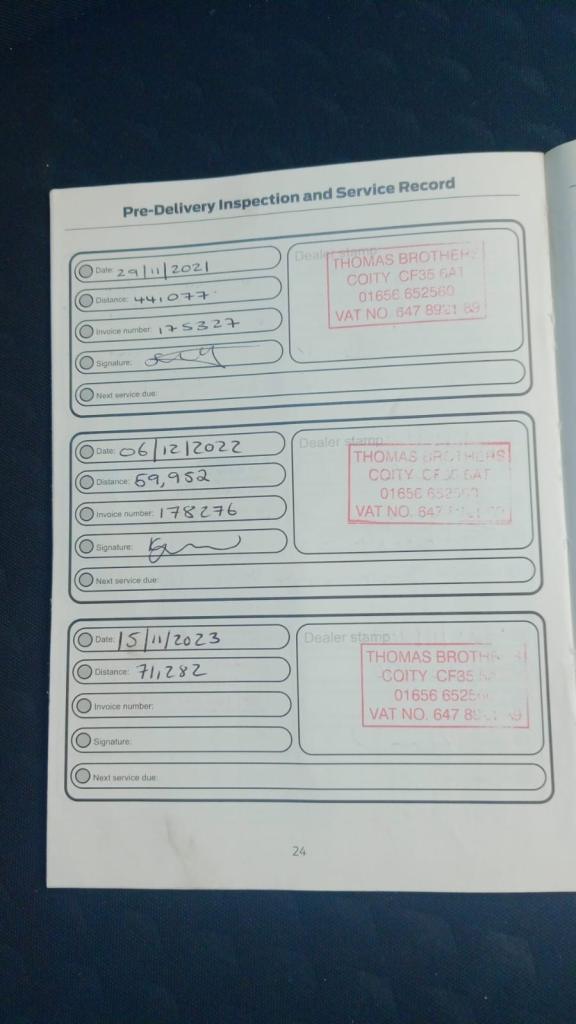 Pre-Delivery Inspection and Service Record
Date: 29/11/2021
Distance: 441,077
Invoice number: 175327
Signature:
Next service due:
Dealer stamp
THOMAS BROTHERS
COITY CF35 6AT
01656 652560
VAT NO. 647 8921 89
Date: 06/12/2022
Distance: 59,952
Invoice number: 178276
Signature:
Next service due:
Dealer stamp
THOMAS BROTHERS
COITY CF35 6AT
01656
VAT NO. 647
Date: 15/11/2023
Distance: 71,282
Invoice number:
Signature:
Next service due:
Dealer stamp
THOMAS
COITY CF35
01656
VAT NO. 647
24